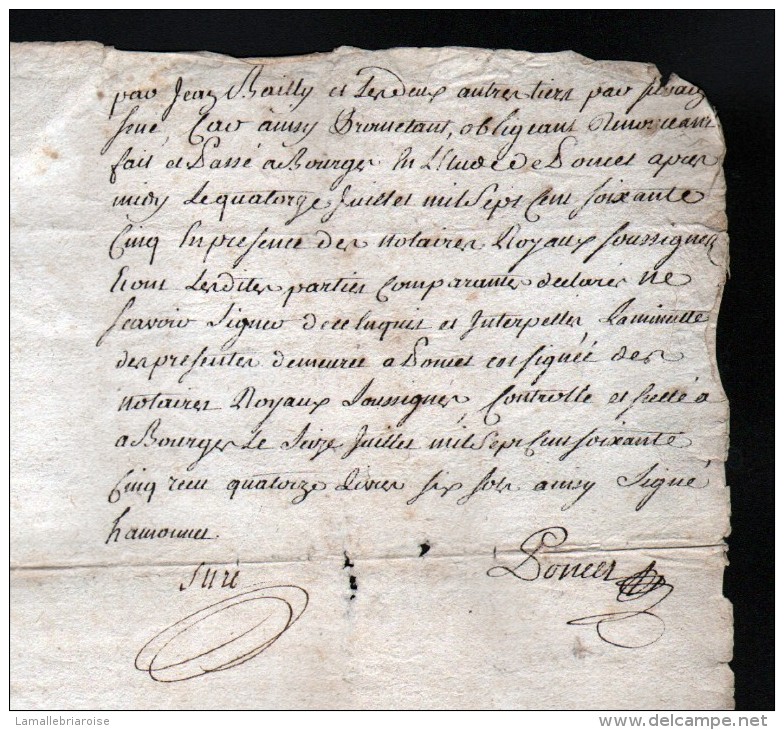 par Jean Bailly et Les deux autres tiers par
Car ainsy Prometant, obligeant Renonceant
fait et Passé a Bourges En L'Etude de Poncet apres
midy Le quatorze Juillet mil Sept Cent Soixante
Cinq En presence des notaires Royaux Soussignez
Et ont Lesdites parties Comparantes declarés ne
scavoir Signer de ce Enquis et Interpellés La minutte
des presentes demeurée a Poncet est signée des
notaires Royaux Soussignés, Controllé et scellé a
a Bourges Le Seize Juillet mil Sept Cent Soixante
Cinq recu quatorze Livres six sols ainsy Signé
hamonnet.
Suré Poncet
Lamallebriaroise
© delcampe.net